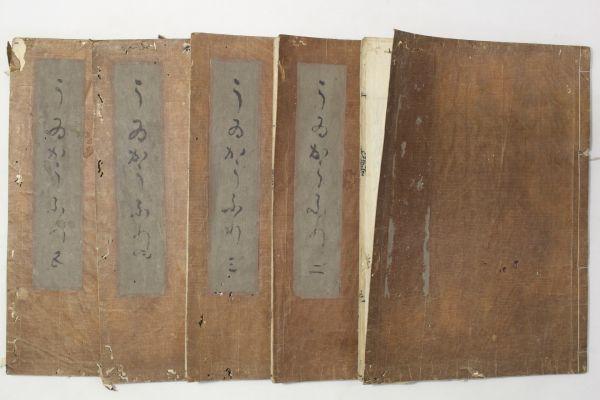 うゐかうふり 二
うゐかうふり 三
うゐかうふり 四
うゐかうふり 五